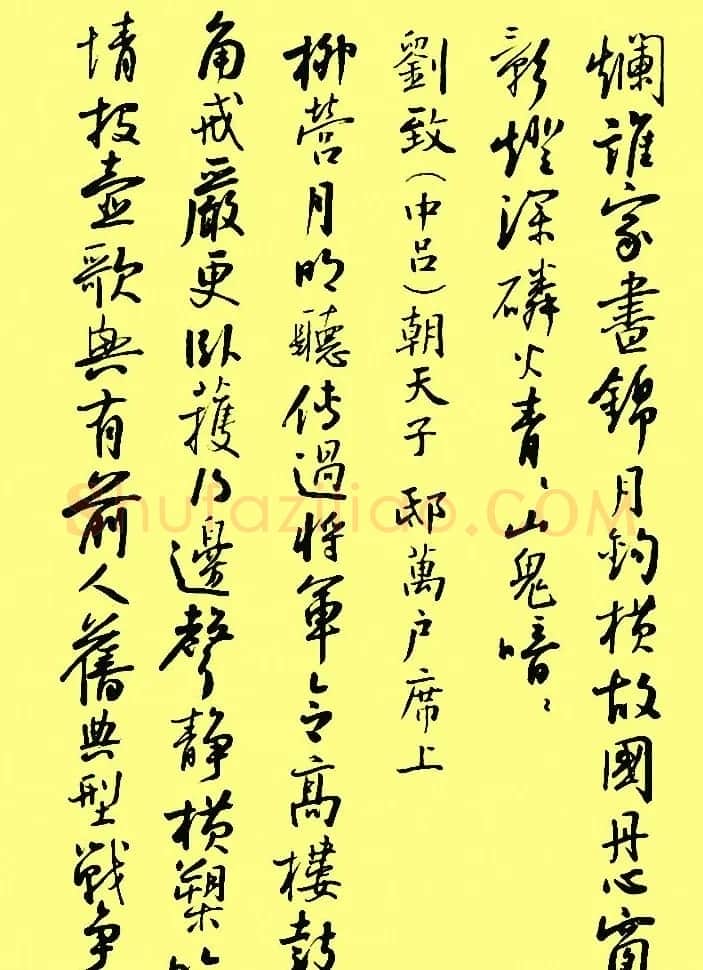 爛誰家晝錦月鈎橫故國丹心窗
影燈深磷火青〻山鬼喑〻
劉致(中呂)朝天子 邸萬户席上
柳營月明聽傳過將軍令高樓鼓
角戒嚴更臥護得邊聲靜橫槊
情投壺歌興有前人舊典型戰爭
shufaziliao.COM